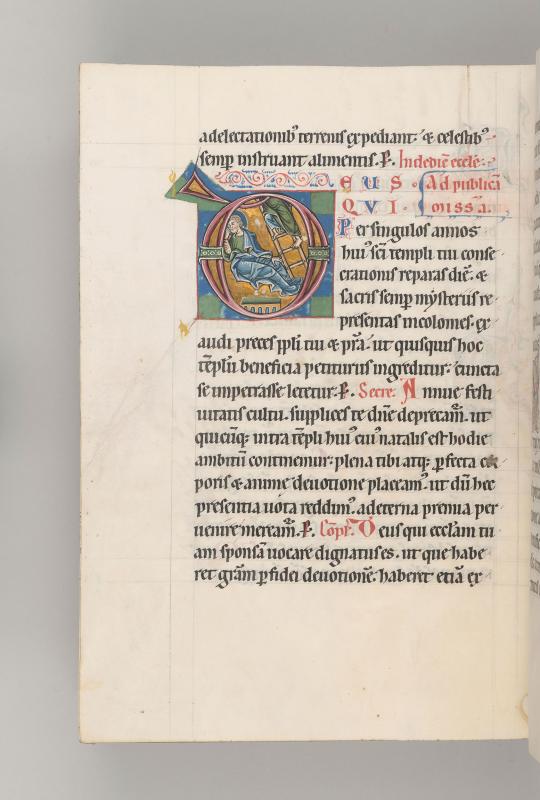 adelectationib' terrenis expediant: & celestib'
semp instruant alimentis. P. In dedic̄ eccłe.
DEUS Ad publicā
QUI missā.
Per singulos annos
hui' sc̄i templi tui conse
crationis reparas diē: &
sacris semp mysteriis re
presentas incolomes: ex
audi preces ppłi tui & pr̄a. ut quisquis hoc
tēplū beneficia petiturus ingreditur: cuncta
se impetrasse letetur. P. Secre. Annue festi
uitatis cultu. supplices te dn̄e deprecam̄. ut
quicūq; intra tēpli hui' cui' natalis est hodie
ambitū continemur: plena tibi atq; pfecta cor
poris & anime deuotione placeam'. ut dū hec
presentia uota reddim'. ad eterna premia per
uenire meream̄. P. Cōpł. Deus qui eccłam tu
am sponsā uocare dignatus es. ut que habe
ret grām p fidei deuotionē: haberet etiā ex